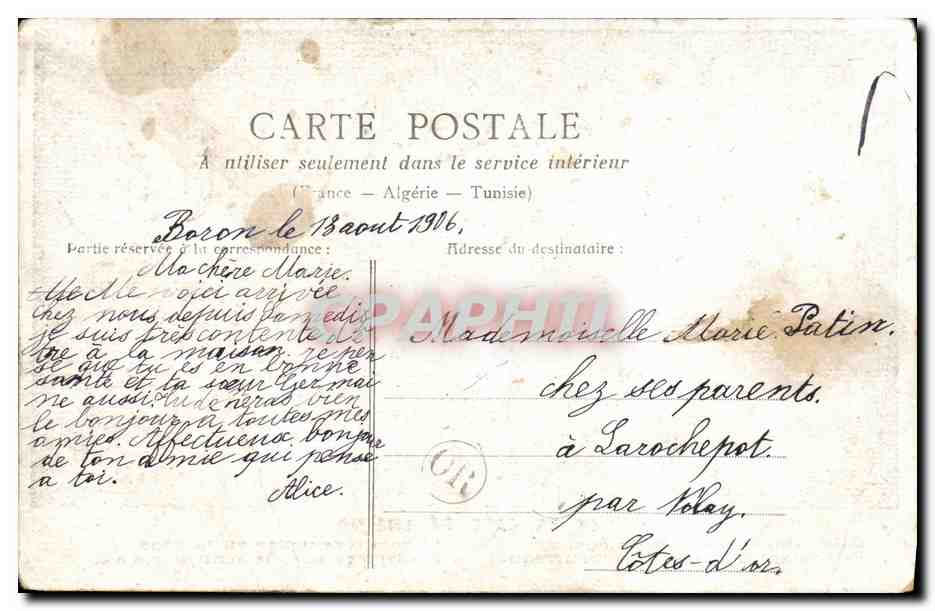 CARTE POSTALE
A utiliser seulement dans le service intérieur
(France — Algérie — Tunisie)
Boron le 13 aout 1906.
Partie réservée à la correspondance :
Adresse du destinataire :
Ma chère Marie.
Me voici arrivée
chez nous depuis samedis
je suis très contente dê
tre à la maison. je pen
se que tu es en bonne
santé et ta sœur Germai
ne aussi. tu deneras bien
le bonjour à toutes mes
amies. Affectueux bonjour
de ton amie qui pense
a toi.
Alice.
Mademoiselle Marie Patin.
chez ses parents.
à Larochepot.
par Nolay.
Côtes-d'or.
OR
CPAPHIL